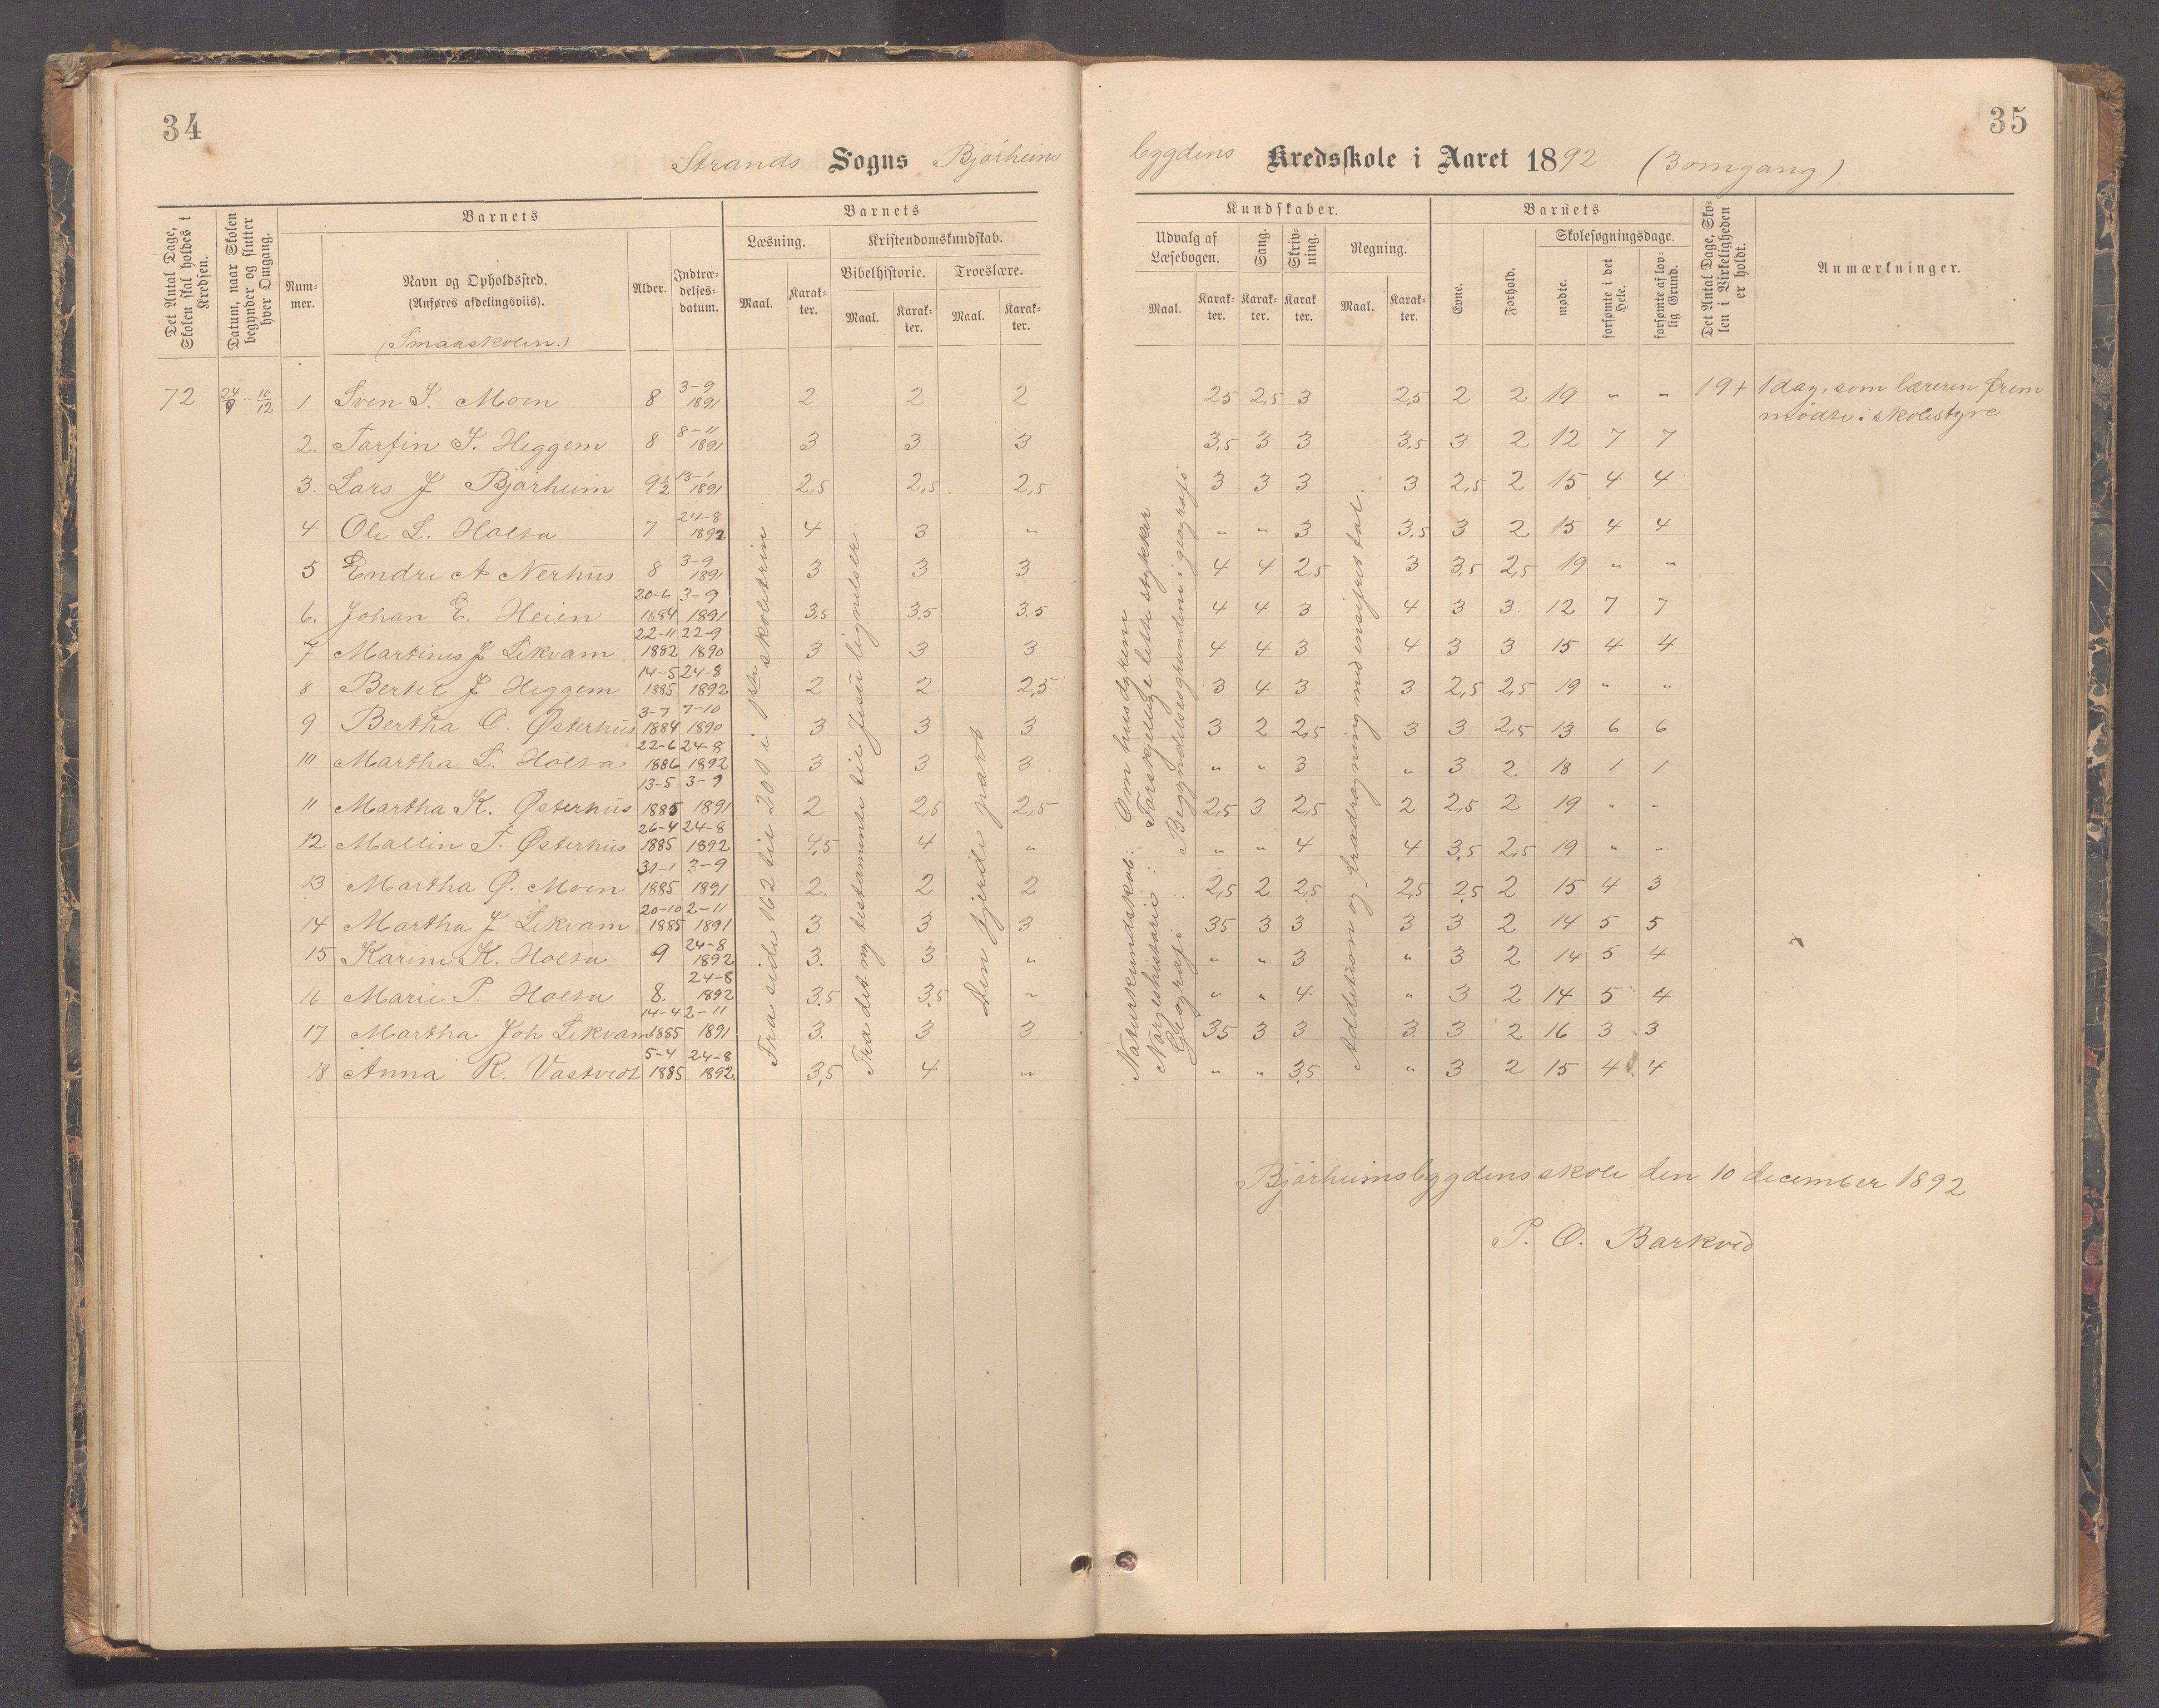 34
Strands Sogns Bjørheim
Det Antal Dage, Skolen skal holdes i Kredsen.
Datum, naar Skolen begynder og slutter hver Omgang.
Barnets
Num-mer.
Navn og Opholdssted.
(Anføres afdelingsviis).
(Smaaskolen.)
Alder.
Indtræ-delses-datum.
Barnets
Læsning.
Maal.
Karak-ter.
Kristendomskundskab.
Bibelhistorie.
Maal.
Karak-ter.
Troeslære.
Maal.
Karak-ter.
72 24/9 - 10/12 1 Sven S. Moen 8 3-9 1891 2 2 2
2. Torfin S. Heggem 8 8-11 1891 3 3 3
3. Lars J Bjørheim 9½ 13-1 1891 2,5 2,5 2,5
4 Ole L. Holta 7 24-8 1892 4 3 "
5 Endre A Nerhus 8 3-9 1891 3 3 3
6. Johan E. Heien 20-6 1884 3-9 1891 3,5 3,5 3.5
7 Martines J Lekvam 22-11 1882 22-9 1890 3 3 3
8 Bertel J Heggem 14-5 1885 24-8 1892 2 2 2,5
9 Bertha O. Østerhus 3-7 1884 7-10 1890 3 3 3
10 Martha L. Holta 22-6 1886 24-8 1892 3 3 3
11 Martha K. Østerhus 13-5 1885 3-9 1891 2 2,5 2,5
12 Mallin T. Østerhus 26-4 1885 24-8 1892 4,5 4 "
13 Martha Ø. Moen 31-1 1885 3-9 1891 2. 2 2
14 Martha J Lekvam 20-10 1885 2-11 1891 3 3 3
15 Karine K. Holta 9 24-8 1892 3. 3 "
16 Marie P. Holta 8. 24-8 1892 3,5 3,5 "
17 Martha Joh Lekvam 14-4 1885 2-11 1891 3. 3 3
18 Anna R. Vastvedt 5-4 1885 24-8 1892 3,5 4 "
Fra side 162 til 201 i 1ste skoletrin
Fra det ny testamente til Jesu lignelser
Den fjerde part
35
bygdens Kredsskole i Aaret 1892 (3omgang)
Kundskaber.
Udvalg af Læsebogen.
Maal.
Karak-ter.
Sang.
Karak-ter.
Skriv-ning.
Karak ter.
Regning.
Maal.
Karak-ter.
Barnets
Evne.
Forhold.
Skolesøgningsdage.
mødte.
forsømte i det Hele.
forsømte af lov-lig Grund.
Det Antal Dage, Sko-len i Virkeligheden er holdt.
Anmærkninger.
2,5 2,5 3 2,5 2 2 19 " " 19+ 1 dag, som læreren frem
mødte i skolestyre
3,5 3 3 3,5 3 2 12 7 7
3 3 3 3 2,5 2 15 4 4
" " 3 3,5 3 2 15 4 4
4 4 2,5 3 3,5 2,5 19 " "
4 4 3 4 3 3. 12 7 7
4 4 3 4 3 3 15 4 4
3 4 3 3 2,5 2,5 19 " "
3 2 2,5 3 3 2,5 13 6 6
" " 3 " 3 2 18 1 1
2,5 3 2,5 2 2,5 2 19 " "
" " 4 4 3,5 2,5 19 " "
2,5 2 2,5 2,5 2,5 2 15 4 3
3,5 3 3 3 3 2 14 5 5
" " 3 " 3 2 14 5 4
" " 4 " 3 2 14 5 4
3,5 3 3 3 3 2 16 3 3
" " 3,5 " 3 2 15 4 4
Naturkundskab: Om husdyrene
Norgeshistorie: Forskjellige lette stykker
Geografi: Begyndelsesgrundene i geografi
Addition og fradragning med ensifret tal.
Bjørheimsbygdens skole den 10 december 1892
P. O. Barkved